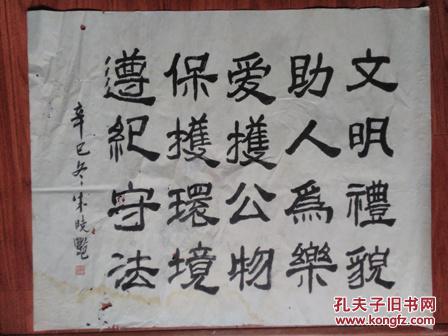 文明禮貌
助人為樂
爱擭公物
保擭環境
遵紀守法
辛巳冬、宋晓艷
孔夫子旧书网
www.kongfz.com